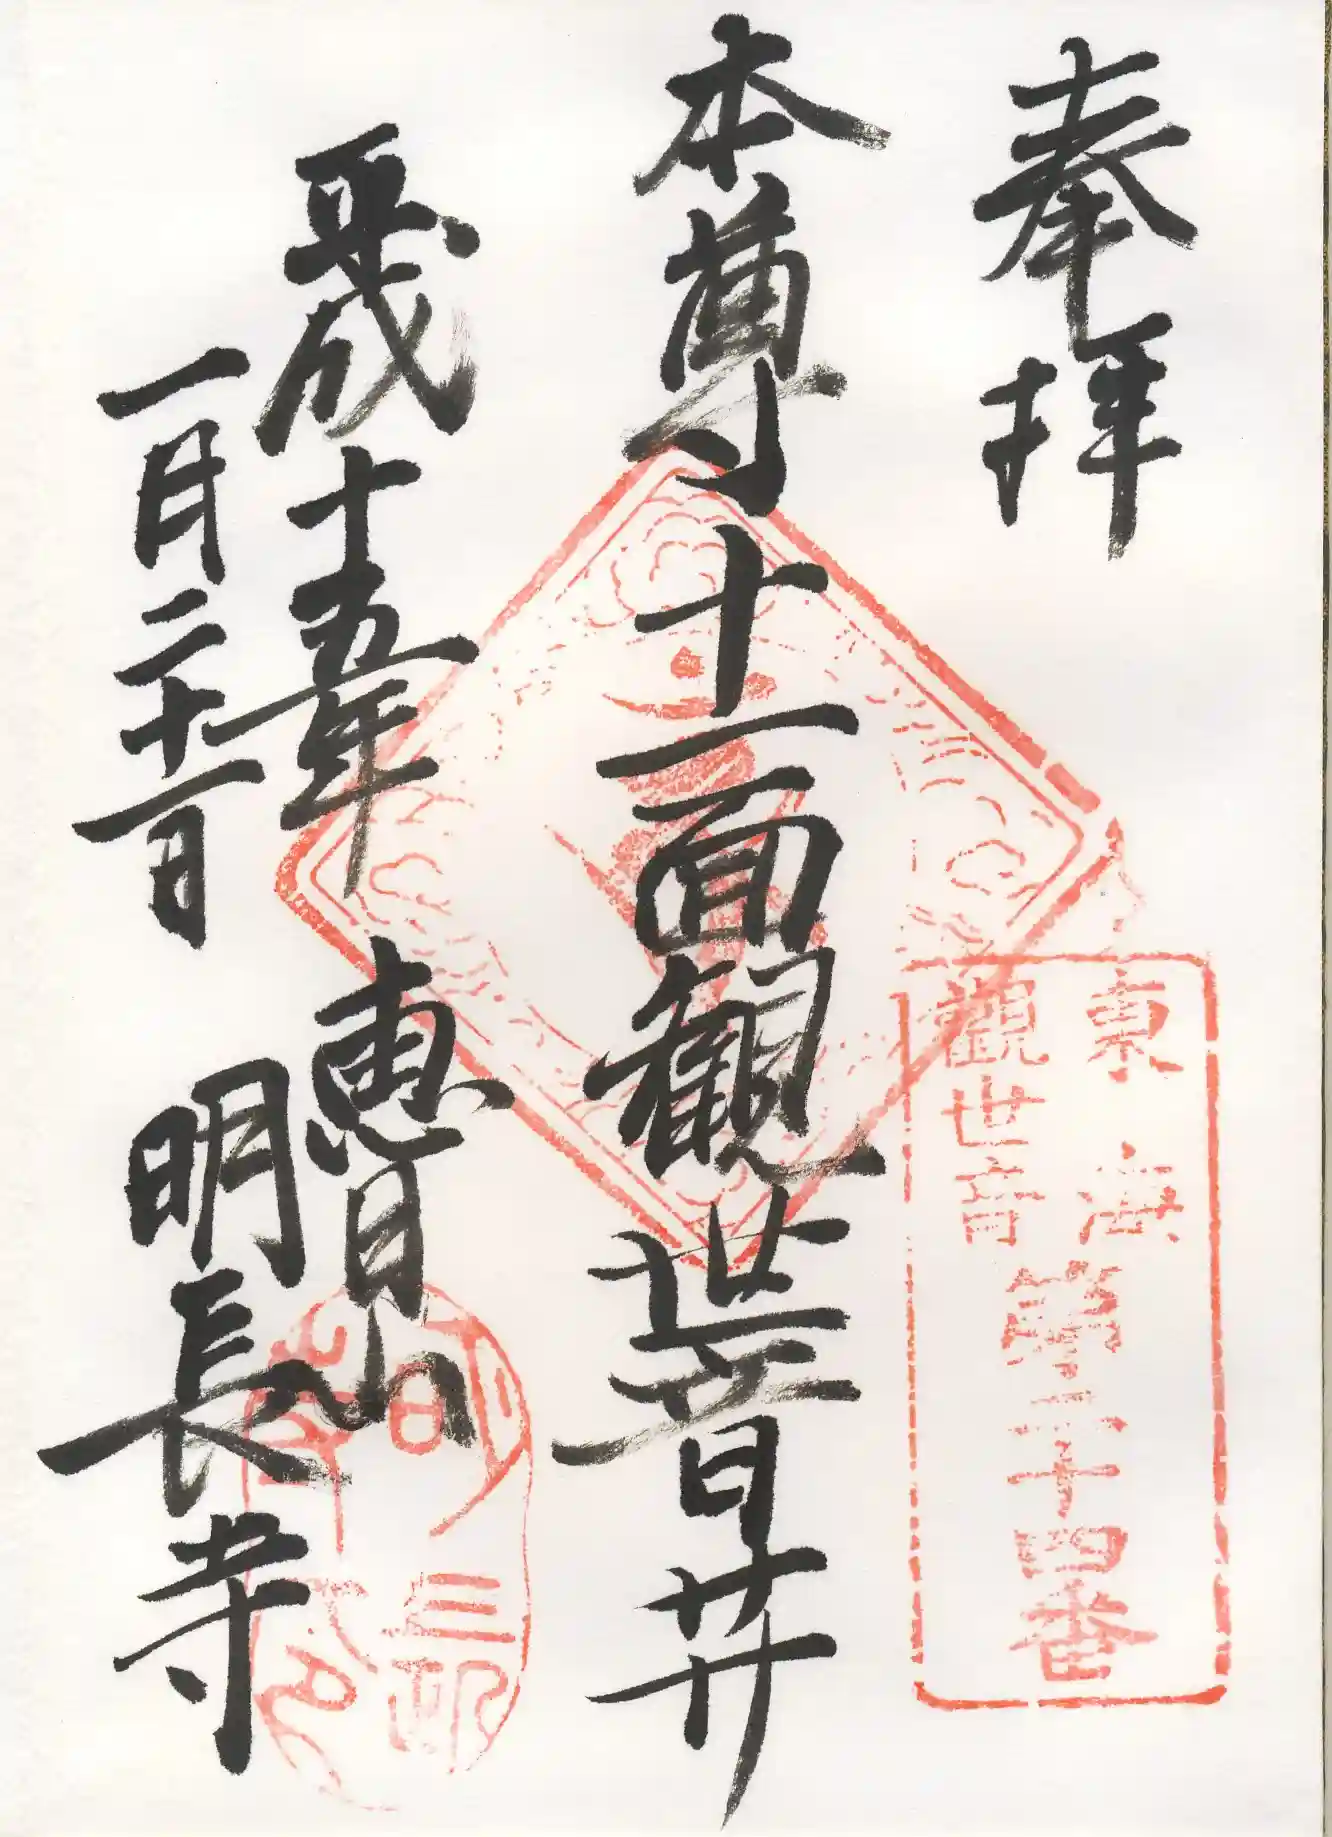 奉拝
東海
觀世音
第二十四番
本尊十一面観世音𦬇
平成十五年
一月二十一日
恵日山
明長寺